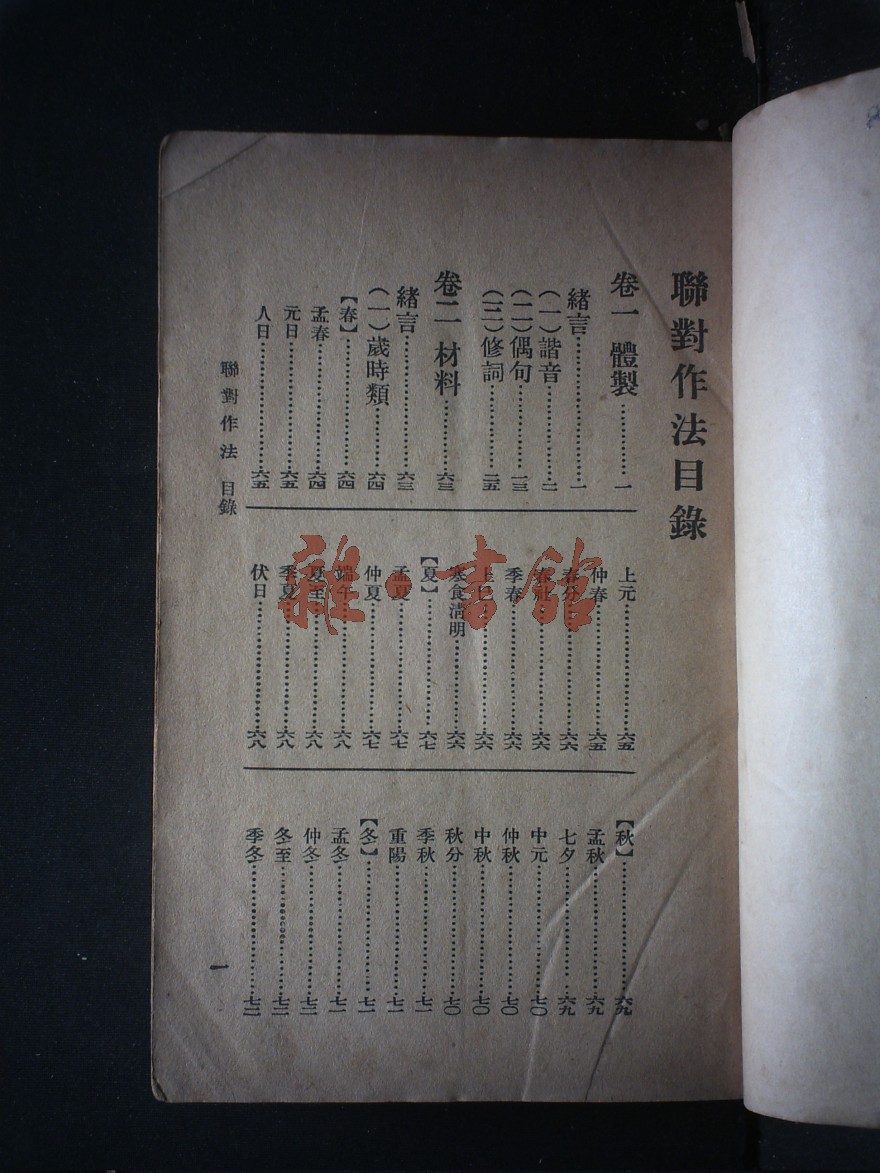 聯對作法目錄
卷一 體製⋯⋯一
緒言⋯⋯一
(一)諧音⋯⋯二
(二)偶句⋯⋯一三
(三)修詞⋯⋯二五
卷二 材料⋯⋯六三
緒言⋯⋯六三
(一)歲時類⋯⋯六四
【春】⋯⋯六四
孟春⋯⋯六四
元日⋯⋯六五
人日⋯⋯六五
上元⋯⋯六五
仲春⋯⋯六五
春分⋯⋯六六
春社⋯⋯六六
季春⋯⋯六六
上巳⋯⋯六六
寒食淸明⋯⋯六六
【夏】⋯⋯六七
孟夏⋯⋯六七
仲夏⋯⋯六七
端午⋯⋯六八
夏至⋯⋯六八
季夏⋯⋯六八
伏日⋯⋯六八
【秋】⋯⋯六九
孟秋⋯⋯六九
七夕⋯⋯六九
中元⋯⋯七〇
仲秋⋯⋯七〇
中秋⋯⋯七〇
秋分⋯⋯七〇
季秋⋯⋯七一
重陽⋯⋯七一
【冬】⋯⋯七一
孟冬⋯⋯七一
仲冬⋯⋯七二
冬至⋯⋯七二
季冬⋯⋯七二
聯對作法 目錄
一
雜·書館